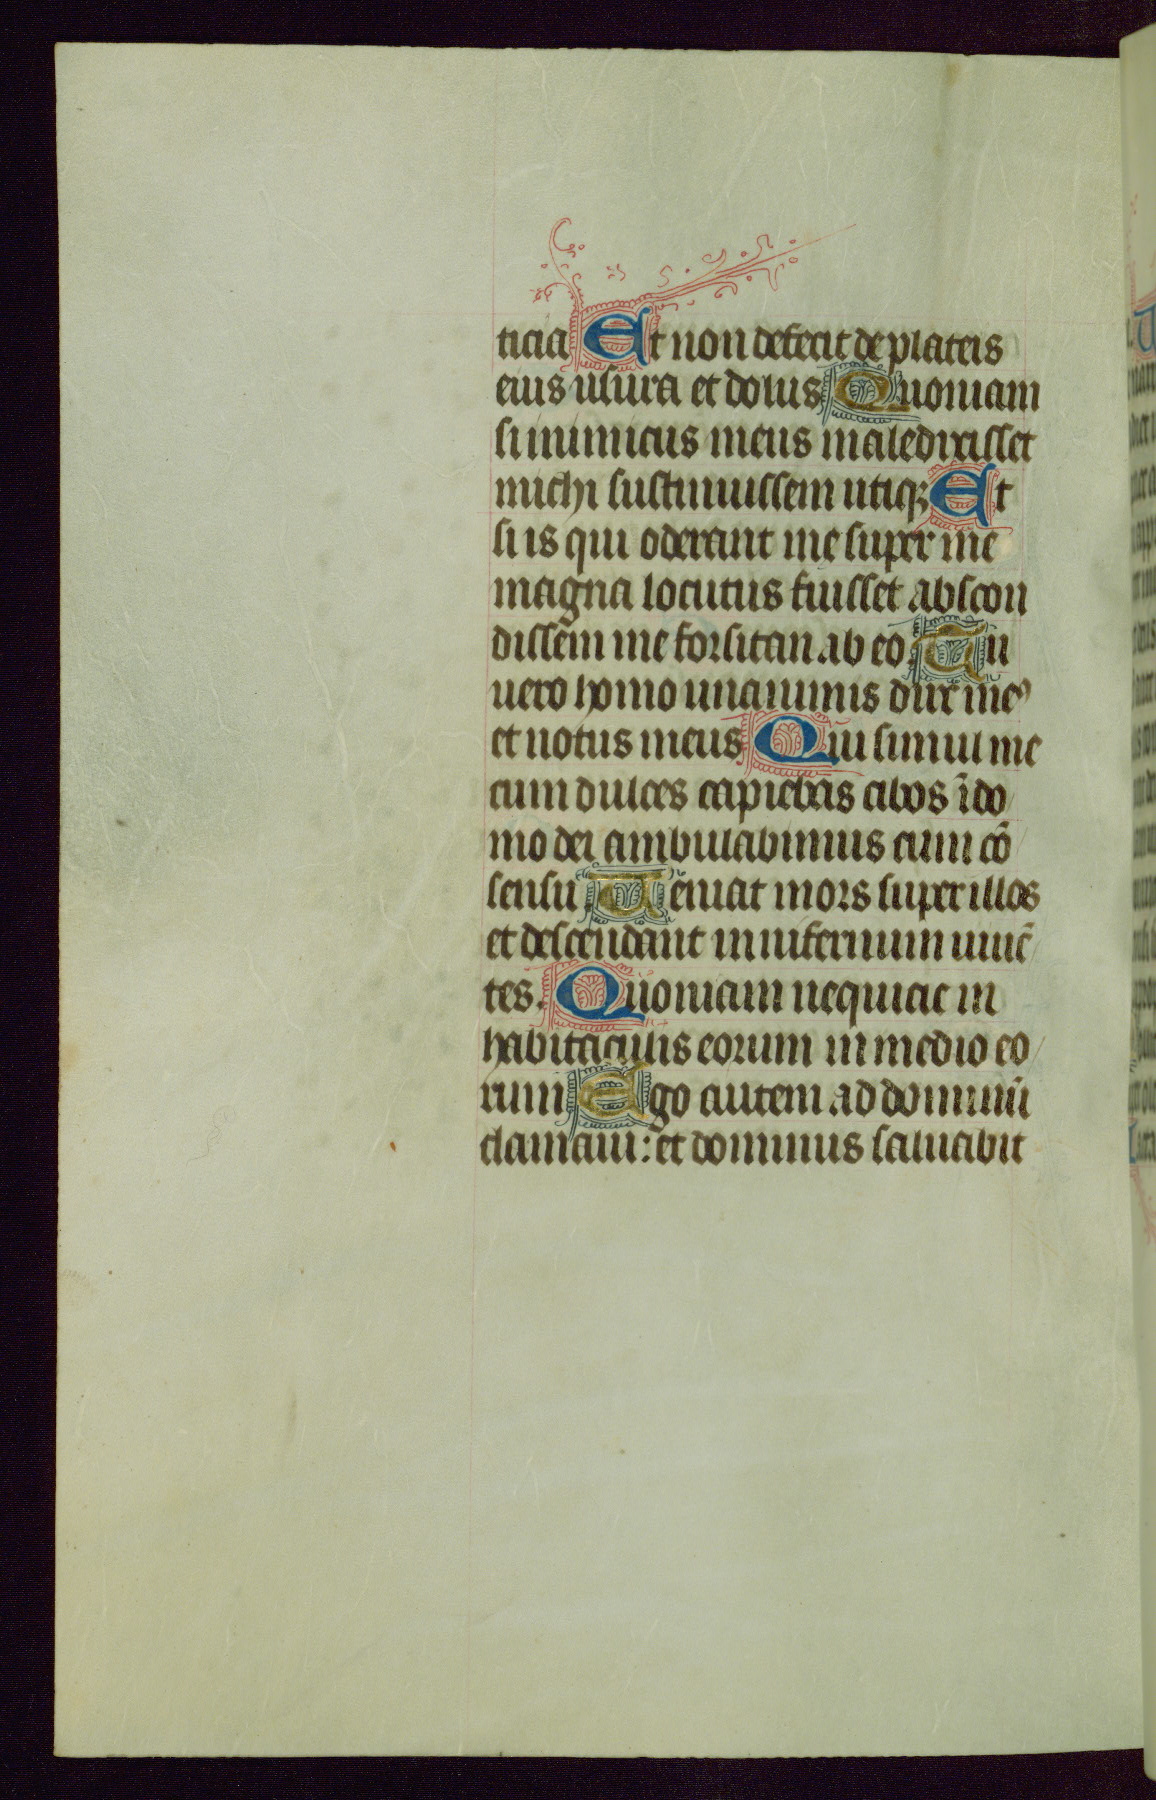 ticia Et non defecit de plateis
eius usura et dolus Quoniam
si inimicus meus maledixisset
michi sustinuissem utiqȝ Et
si is qui oderant me super me
magna locutus fuisset abscon
dissem me forsitan ab eo. Tu
vero homo unanimis dux meꝰ
et notus meus Qui simul me
cum dulces capiebas cibos ī do
mo dei ambulabimus cum cō
sensu. Veniat mors super illos
et descendant in infernum vivē
tes. Quoniam nequicie in
habitaculis eorum in medio eo
rum Ego autem ad dominū
clamaui: et dominus saluabit